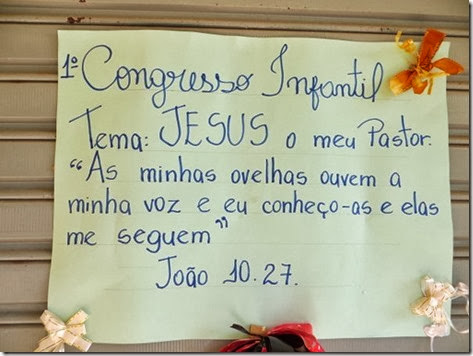 1º Congresso Infantil
Tema: JESUS o meu Pastor.
"As minhas ovelhas ouvem a
minha voz e eu conheço-as e elas
me seguem"
João 10.27.